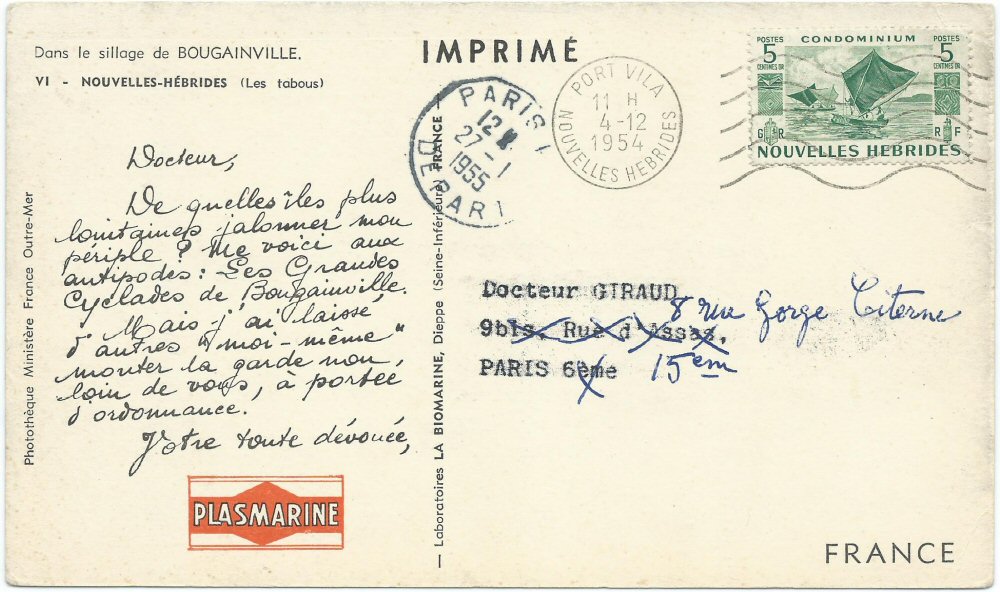 Dans le sillage de BOUGAINVILLE.
VI - NOUVELLES-HÉBRIDES (Les tabous)
Docteur,
De quelles îles plus
lointaines jalonner mon
périple ? Me voici aux
antipodes : Les Grandes
Cyclades de Bougainville.
Mais j'ai laissé
d'autres "moi-même"
monter la garde non
loin de vous, à portée
d'ordonnance.
Votre toute dévouée,
PLASMARINE
Photothèque Ministère France Outre-Mer
Laboratoires LA BIOMARINE, Dieppe (Seine-Inférieure) FRANCE
IMPRIMÉ
PARIS
12 H
27-1
1955
DEPART
PORT VILA
11 H
4-12
1954
NOUVELLES HEBRIDES
POSTES
5
CENTIMES OR
CONDOMINIUM
POSTES
5
CENTIMES OR
G R
R F
NOUVELLES HEBRIDES
Docteur GIRAUD
8 rue Gorge Citerne
9bis, Rue d'Assas,
PARIS 6ème 15em
FRANCE